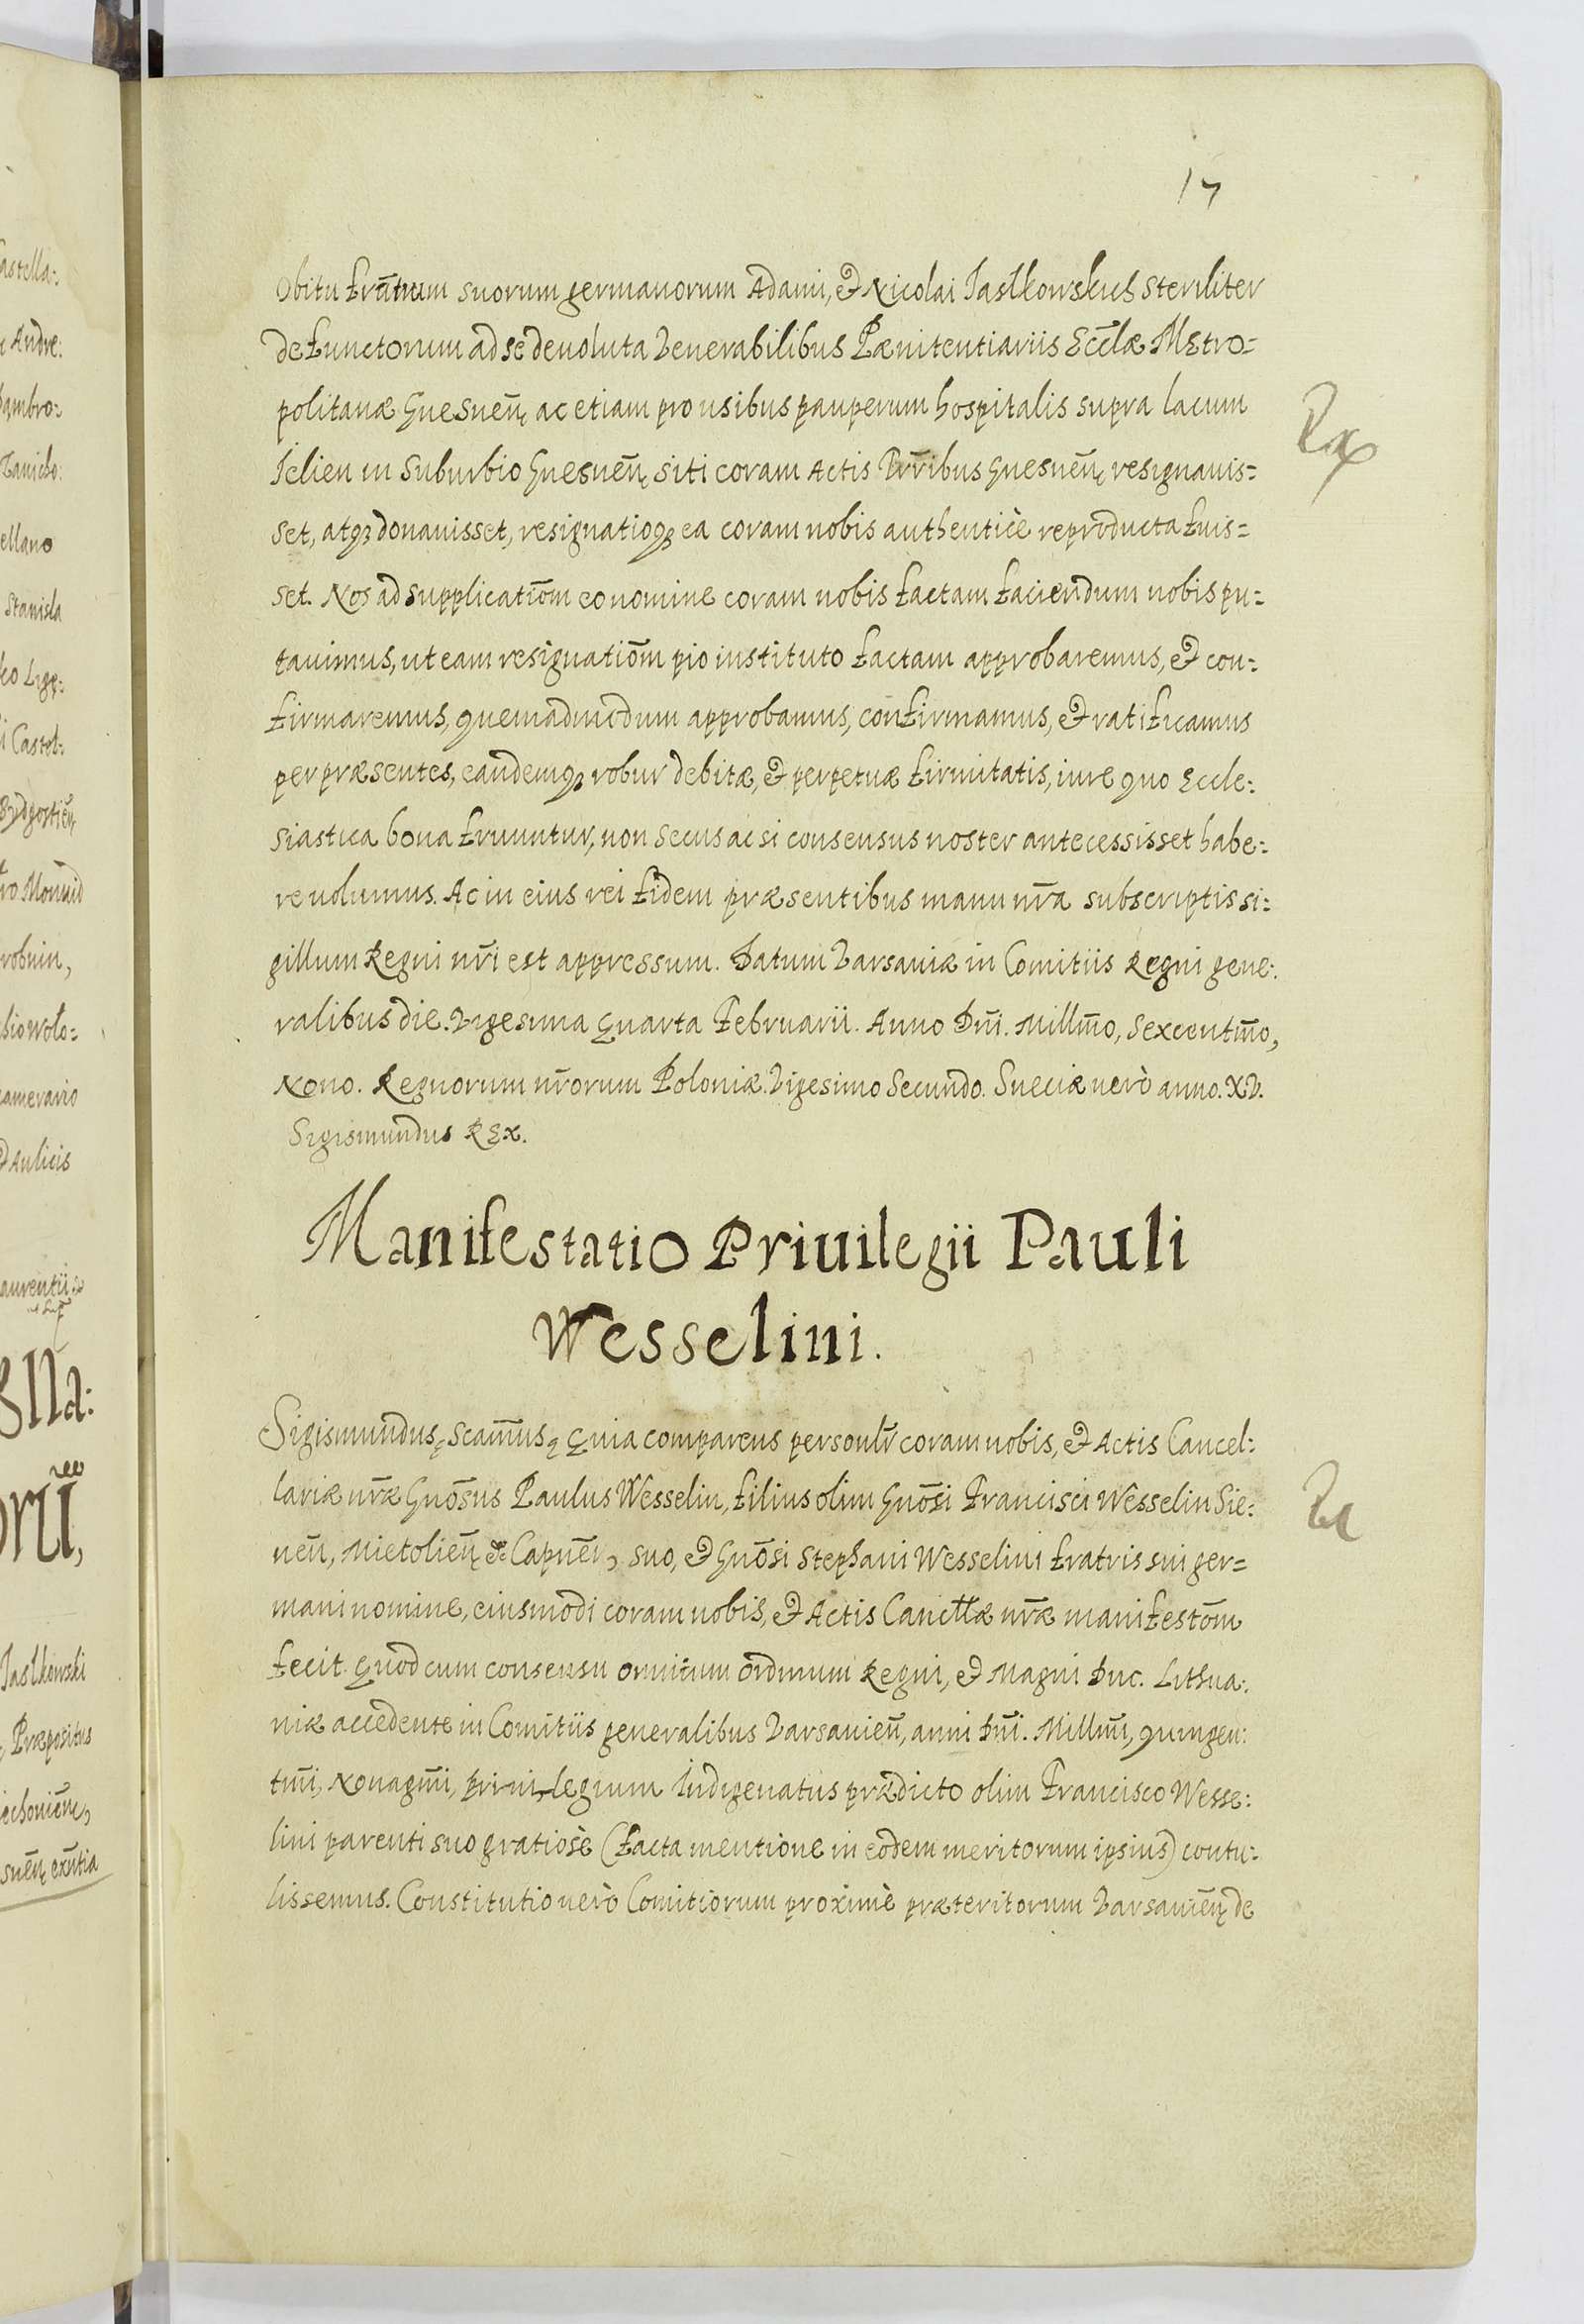 17
obitu frat̃rum suorum germanorum Adami, & Nicolai Jaslkowskich steriliter
defunctorum ad se deuoluta Venerabilibus Pænitentiariis Eccl̃æ Metro=
politanæ Gnesneñ, ac etiam pro usibus pauperum hospitalis supra lacum
Jelien in Suburbio Gnesneñ, siti coram Actis Prr̃ibus Gnesneñ, resignauis=
set, atq3 donauisset, resignatioq3 ea coram nobis authenticè reproducta fuis=
set. Nos ad supplicatiõm eo nomine coram nobis factam faciendum nobis pu=
tauimus, ut eam resignatiõm pio instituto factam approbaremus, & con=
firmaremus, quemadmodum approbamus, confirmamus, & ratificamus
per præsentes, eandemq3 robur debitæ, & perpetuæ firmitatis, iure quo Eccle:
siastica bona fruuntur, non secus ac si consensus noster antecessisset habe:
re uolumus. Ac in eius rei fidem præsentibus manu nr̃a subscriptis si:
gillum Regni nr̃i est appressum. Datum Varsauiæ in Comitiis Regni gene:
ralibus die. Vigesima Quarta Februarii. Anno Dñi. Millm̃o, Sexcentm̃o,
Nono. Regnorum nr̃orum Poloniæ. Vigesimo Secundo. Sueciæ uerò anno. XV.
Sigismundus REx.
Manifestatio Priuilegii Pauli
Wesselini.
Sigismundus, Scam̃us, Quia comparens personlr̃ coram nobis, & Actis Cancel:
lariæ nr̃æ Gnõsus Paulus Wesselin, filius olim Gnõsi Francisci Wesselin Sie:
neñ, Mietolieñ & Capueñ, suo, & Gnõsi Stephani Wesselini fratris sui ger=
mani nomine, eiusmodi coram nobis, & Actis Cancll̃æ nr̃æ manifestõm
fecit. Quod cum consensu omnium ordinum Regni, & Magni Duc. Lithua:
niæ accedente in Comitiis generalibus Varsauieñ, anni Dñi. Millm̃i, quingen:
tm̃i, Nonagm̃i, priuilegium Indigenatus prædicto olim Francisco Wesse:
lini parenti suo gratiosè (facta mentione in eodem meritorum ipsius) contu:
lissemus. Constitutio uerò Comitiorum proximè præteritorum Varsauieñ, de